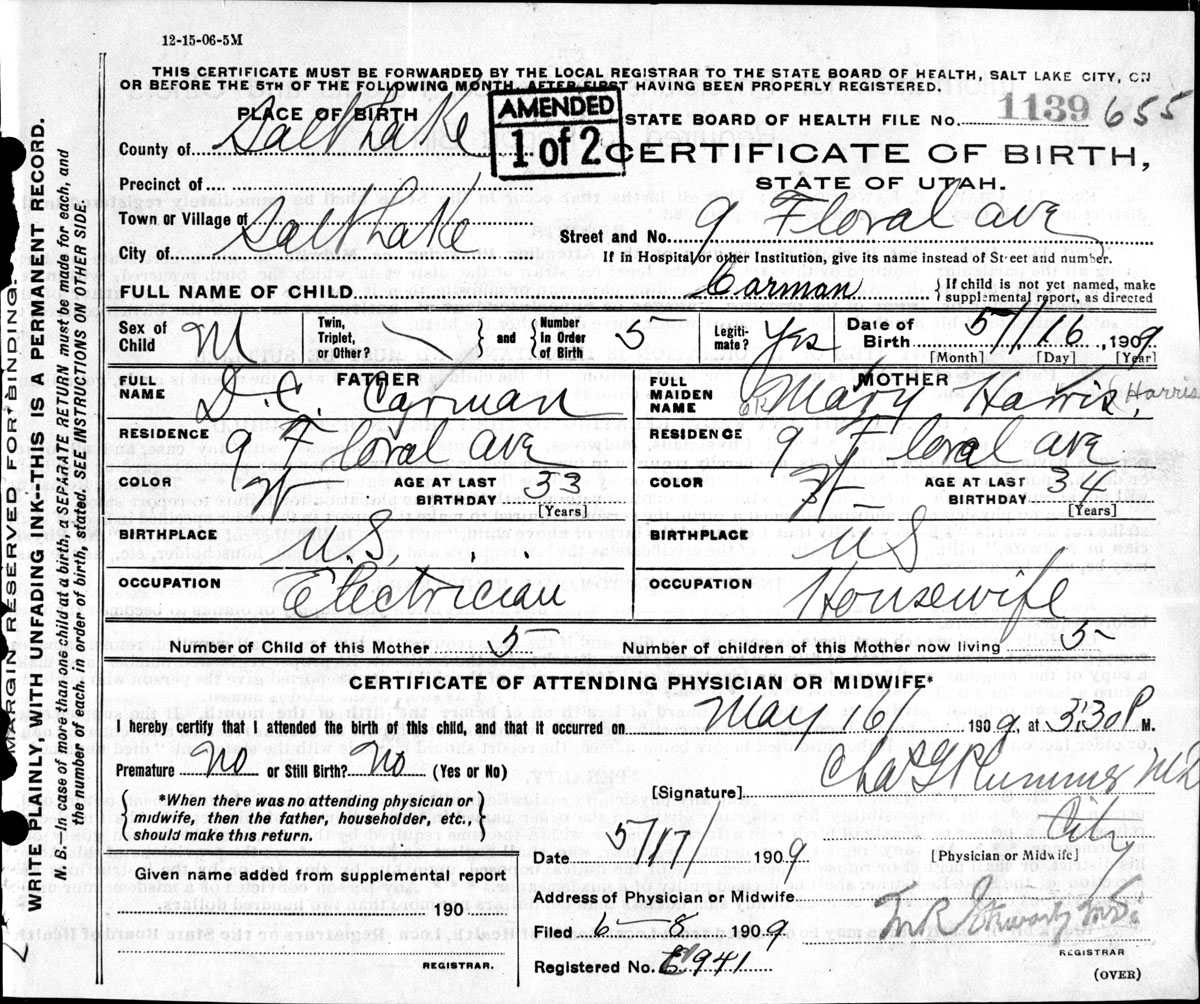 12-15-06-5M
THIS CERTIFICATE MUST BE FORWARDED BY THE LOCAL REGISTRAR TO THE STATE BOARD OF HEALTH, SALT LAKE CITY, ON
OR BEFORE THE 5TH OF THE FOLLOWING MONTH, AFTER FIRST HAVING BEEN PROPERLY REGISTERED.
AMENDED
1 of 2
PLACE OF BIRTH
STATE BOARD OF HEALTH FILE No. 1139 655
County of Salt Lake
CERTIFICATE OF BIRTH,
STATE OF UTAH.
Precinct of
Town or Village of
City of Salt Lake
Street and No. 9 Floral Ave
If in Hospital or other Institution, give its name instead of Street and number.
FULL NAME OF CHILD Carman { If child is not yet named, make supplemental report, as directed
Sex of Child M Twin, Triplet, or Other? } and { Number in Order of Birth 5 Legitimate? Yes Date of Birth 5/16, 1909
[Month] [Day] [Year]
FATHER
FULL NAME D. C. Carman
RESIDENCE 9 Floral ave
COLOR W AGE AT LAST BIRTHDAY 33
[Years]
BIRTHPLACE U.S.
OCCUPATION Electrician
MOTHER
FULL MAIDEN NAME Mary Harris (Harris
RESIDENCE 9 Floral ave
COLOR AGE AT LAST BIRTHDAY
[Years]
BIRTHPLACE U S
OCCUPATION Housewife
Number of Child of this Mother 5 Number of children of this Mother now living 5
CERTIFICATE OF ATTENDING PHYSICIAN OR MIDWIFE*
I hereby certify that I attended the birth of this child, and that it occurred on May 16, 1909, at 3:30 P M.
Premature No or Still Birth? No (Yes or No)
[Signature] Chas G Plummer MD
*When there was no attending physician or
midwife, then the father, householder, etc.,
should make this return.
Date 5/17 1909
City
[Physician or Midwife]
Given name added from supplemental report
190
REGISTRAR.
Address of Physician or Midwife
Filed 6-8 1909
REGISTRAR
Registered No. 941
(OVER)
MARGIN RESERVED FOR BINDING
WRITE PLAINLY, WITH UNFADING INK--THIS IS A PERMANENT RECORD.
N. B.--In case of more than one child at a birth, a SEPARATE RETURN must be made for each, and
the number of each, in order of birth, stated. SEE INSTRUCTIONS ON OTHER SIDE.